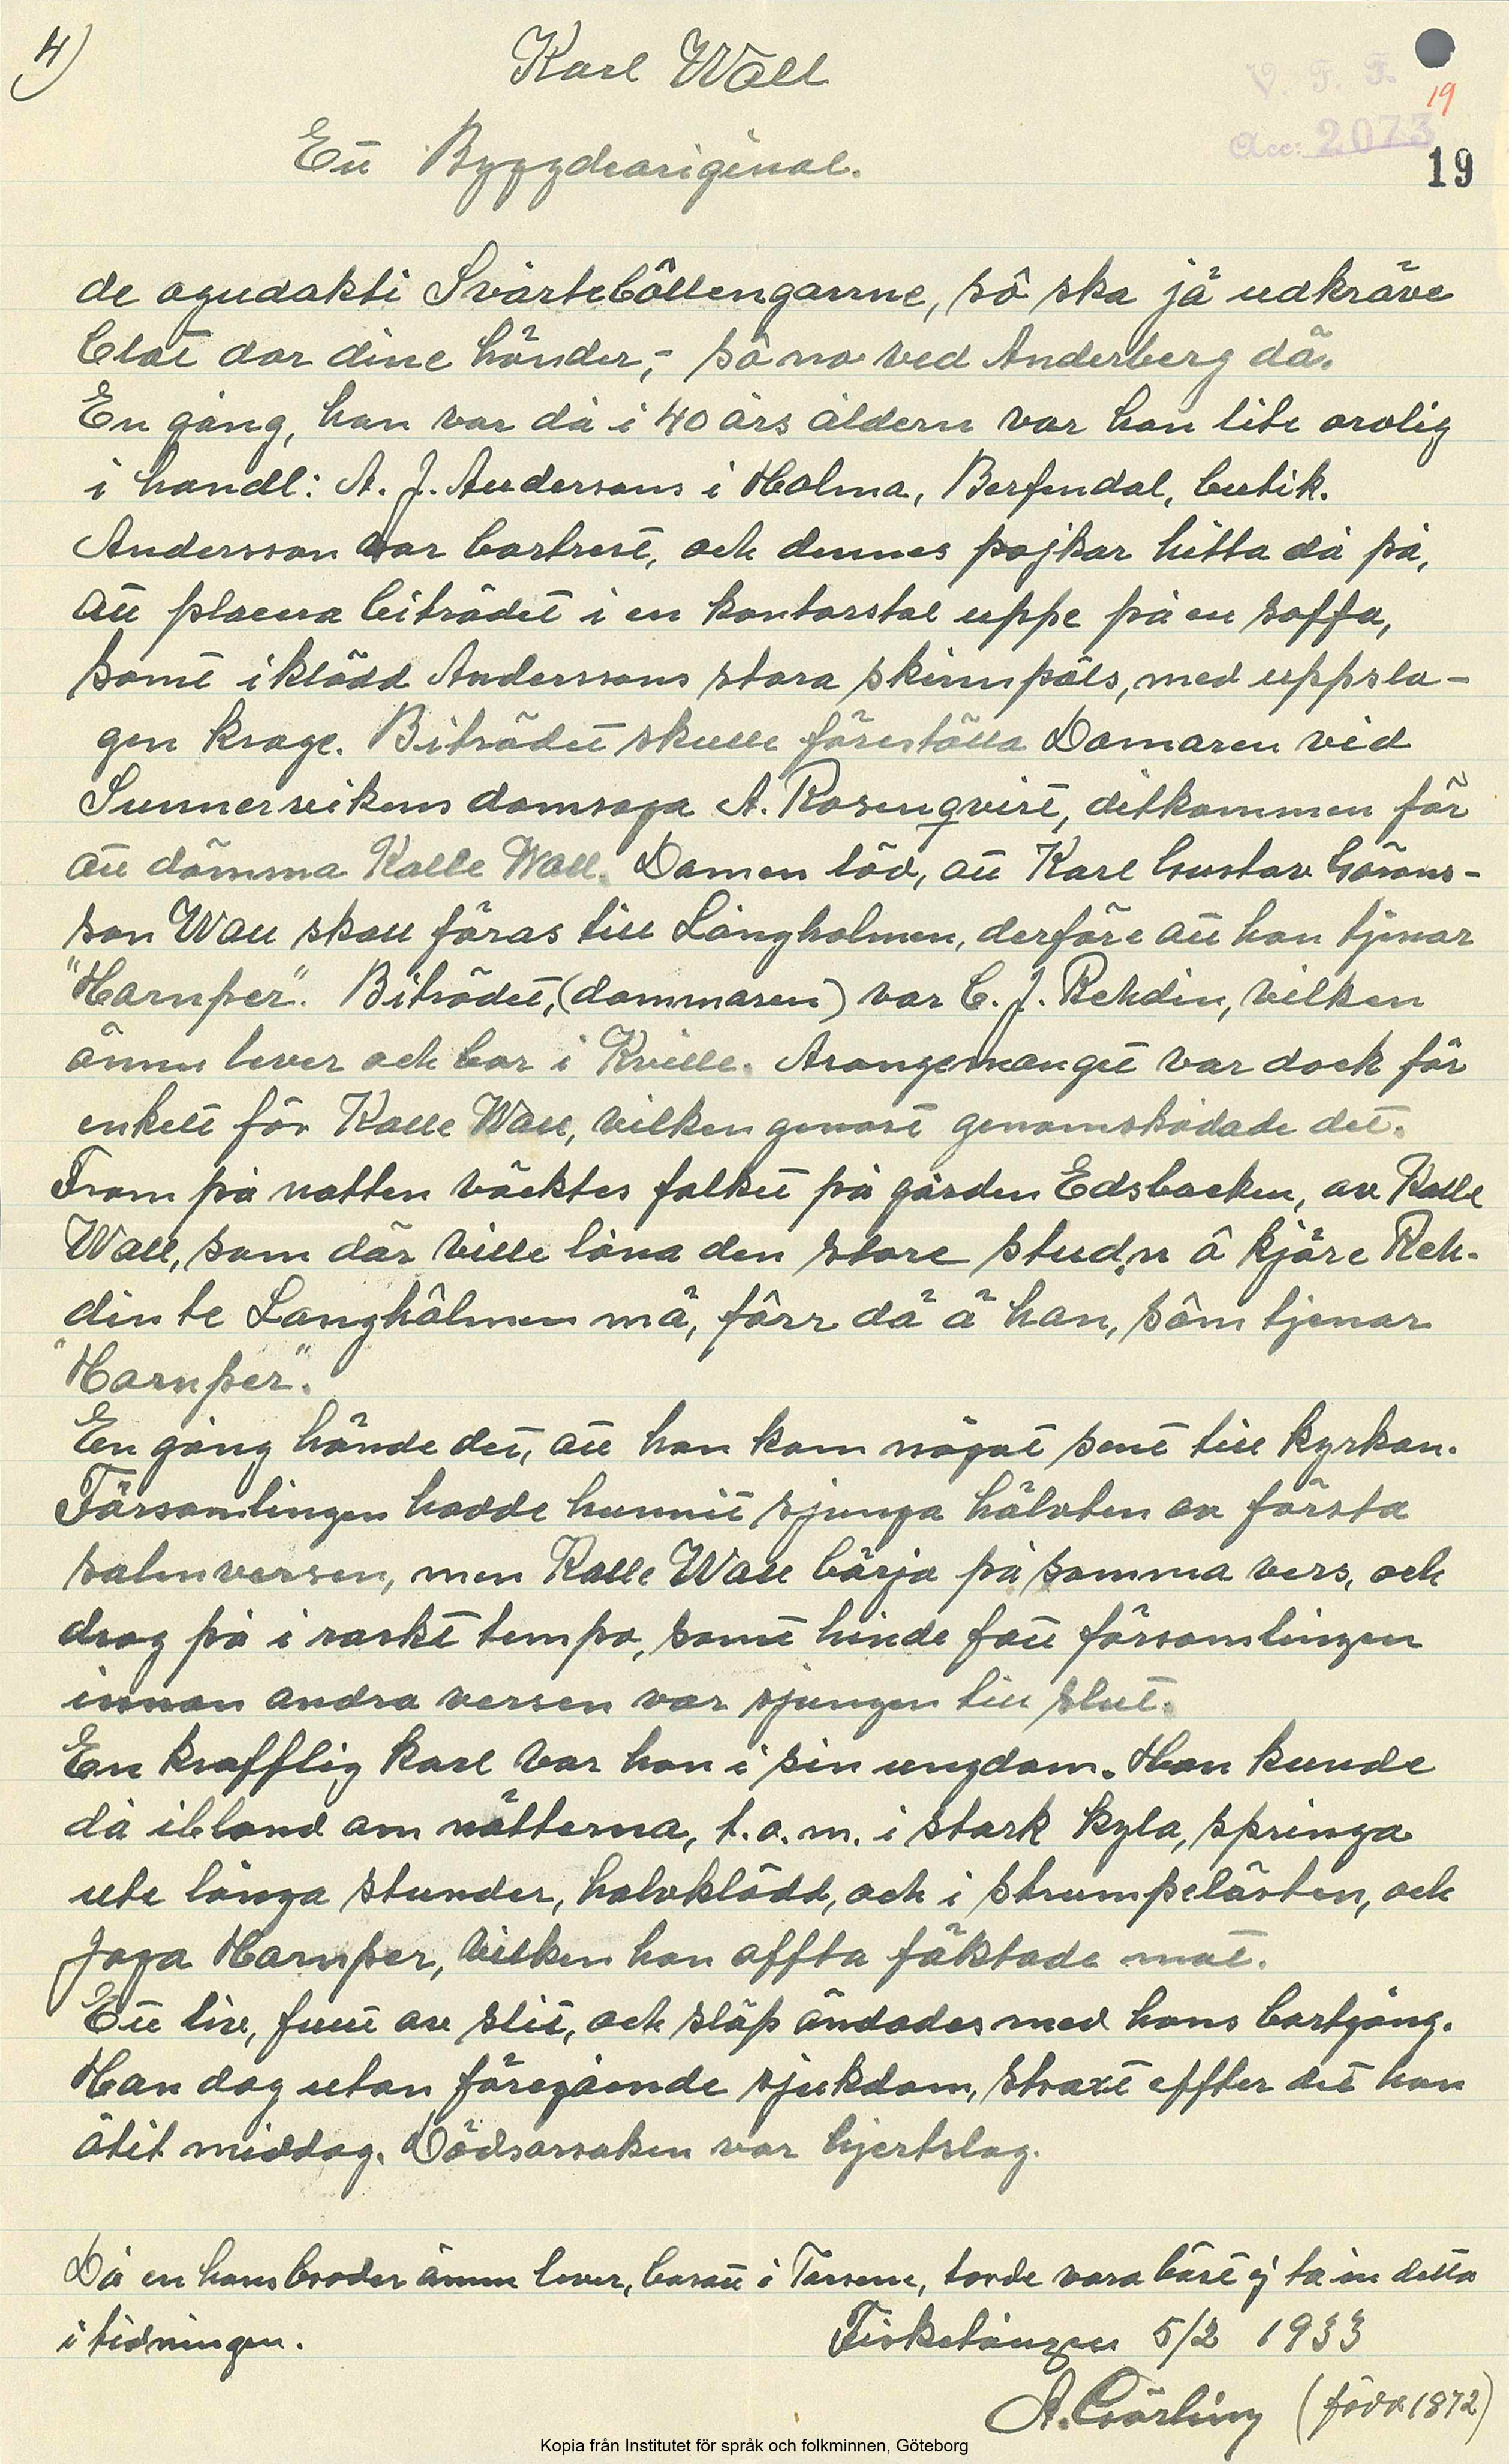 4)
Karl Wall
V. F. F.
19
Ett Byggdeoriginal.
Acc: 2073
19
de ogudakti Svärtebôllengarne, sô ska jä udkräve
blot dor dine hönder,- sô no ved Anderberg dä.
En gång, han var då i 40 års åldern var han lite orolig
i handl: A. J. Anderssons i Holma, Berfendal, butik.
Andersson var bortrest, och dennes pojkar hitta då på,
att placera biträdet i en kontorstol uppe på en soffa,
samt iklädd Anderssons stora skinnpäls, med uppsla-
gen krage. Biträdet skulle föreställa Domaren vid
Sunnervikens domsaga A. Rosenqvist, ditkommen för
att dömma Kalle Wall. Domen löd, att Karl Gustav Görans-
son Wall skall föras till Långholmen, derföre att han tjenar
"Harnper". Biträdet, (dommaren) var C. J. Rehdin, vilken
ännu lever och bor i Kville. Arangemanget var dock för
enkelt för Kalle Wall, vilken genast genomskådade det.
Fram på natten väcktes folket på gården Edsbacken, av Kalle
Wall, som där ville låna den store studn å kjöre Reh-
din te Langhôlmen mä, fôrr dä ä han, sôm tjenar
"Harnper".
En gång hände det, att han kom något sent till kyrkan.
Församlingen hadde hunnit sjunga hälvten av första
salmversen, men Kalle Wall börja på samma vers, och
drog på i raskt tempo, samt hinde fatt församlingen
innan andra versen var sjungen till slut.
En krafftig karl var han i sin ungdom. Han kunde
då ibland om nätterna, t.o.m. i stark kyla, springa
ute långa stunder, halvklädd, och i strumpelästen, och
jaga Harnper, vilken han offta fäktade mot.
Ett liv, fullt av slit, och släp ändades med hans bortgång.
Han dog utan föregående sjukdom, straxt effter det han
ätit middag. Dödsorsaken var hjertslag.
Då en hans broder ännu lever, bosatt i Tossene, torde vara bäst ej ta in detta
i tidningen.
Fisketången 5/2 1933
A. Görling (född 1872)
Kopia från Institutet för språk och folkminnen, Göteborg